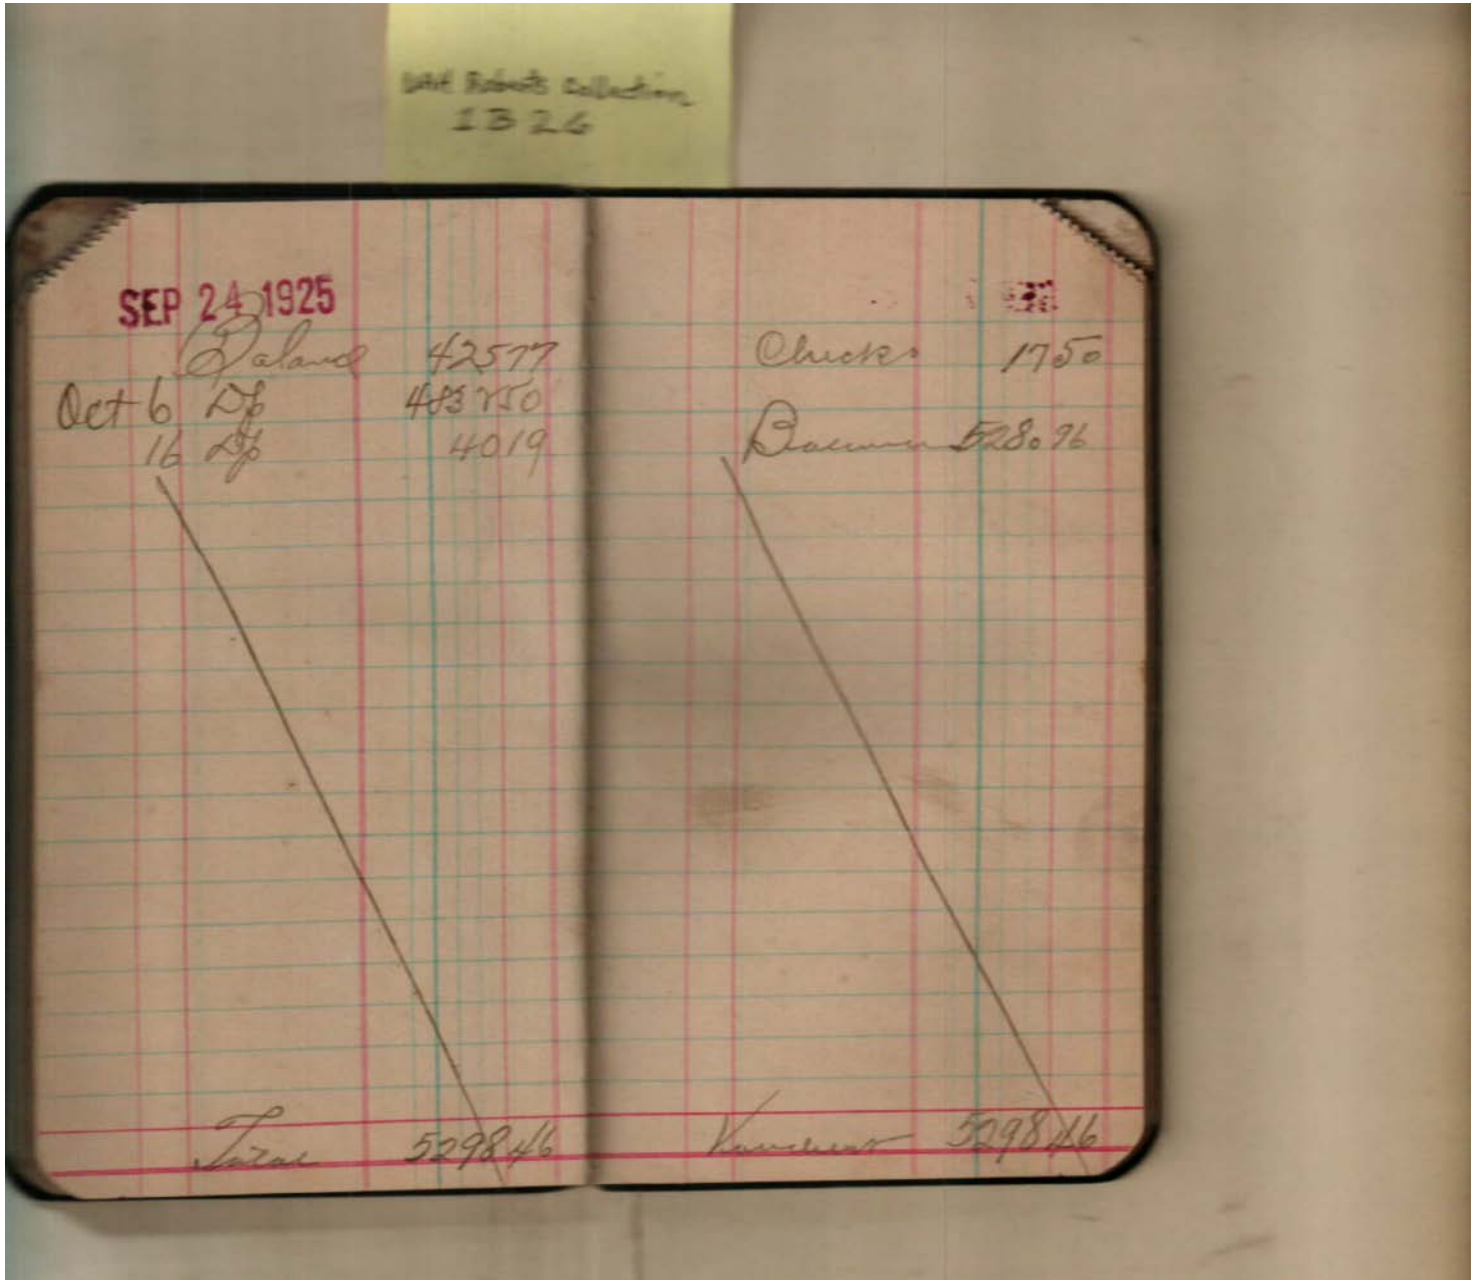 UAH Roberts Collection
1B 26
SEP 24 1925
Balance 425 77
Oct 6 Dp 4832 50
16 Dp 40 19
Total 5298 46
Checks 17 50
Balance 5280 96
Vouchers 5298 46